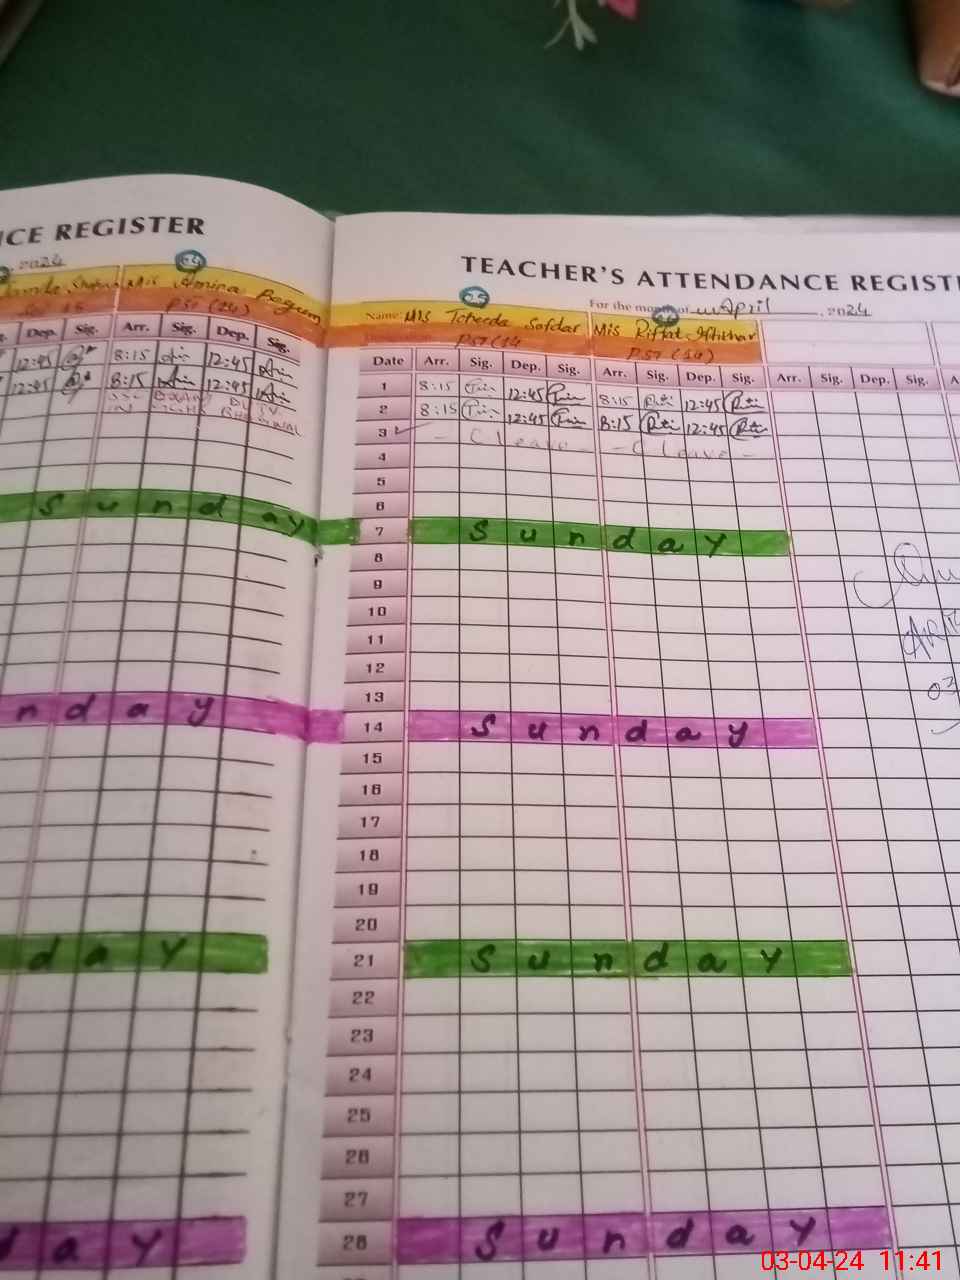 CE REGISTER
, 2024
24
Mis Amina Begum
PST (24)
Dep. Sig. Arr. Sig. Dep. Sig.
12:45 8:15 12:45
12:45 8:15 12:45
TEACHER'S ATTENDANCE REGIST
25
For the month of April , 2024
Name: Mis Toheeda Safdar Mis Riffat Iftikhar
PST (14 PST (14)
Date Arr. Sig. Dep. Sig. Arr. Sig. Dep. Sig. Arr. Sig. Dep. Sig. A
1 8:15 12:45 8:15 12:45
2 8:15 12:45 8:15 12:45
3 - C leave - - C leave -
4
5
6
Sunday
7 Sunday
8
9
10
11
12
13
nday
14 Sunday
15
16
17
18
19
20
day
21 Sunday
22
23
24
25
26
27
day
28 Sunday
03
03-04-24 11:41